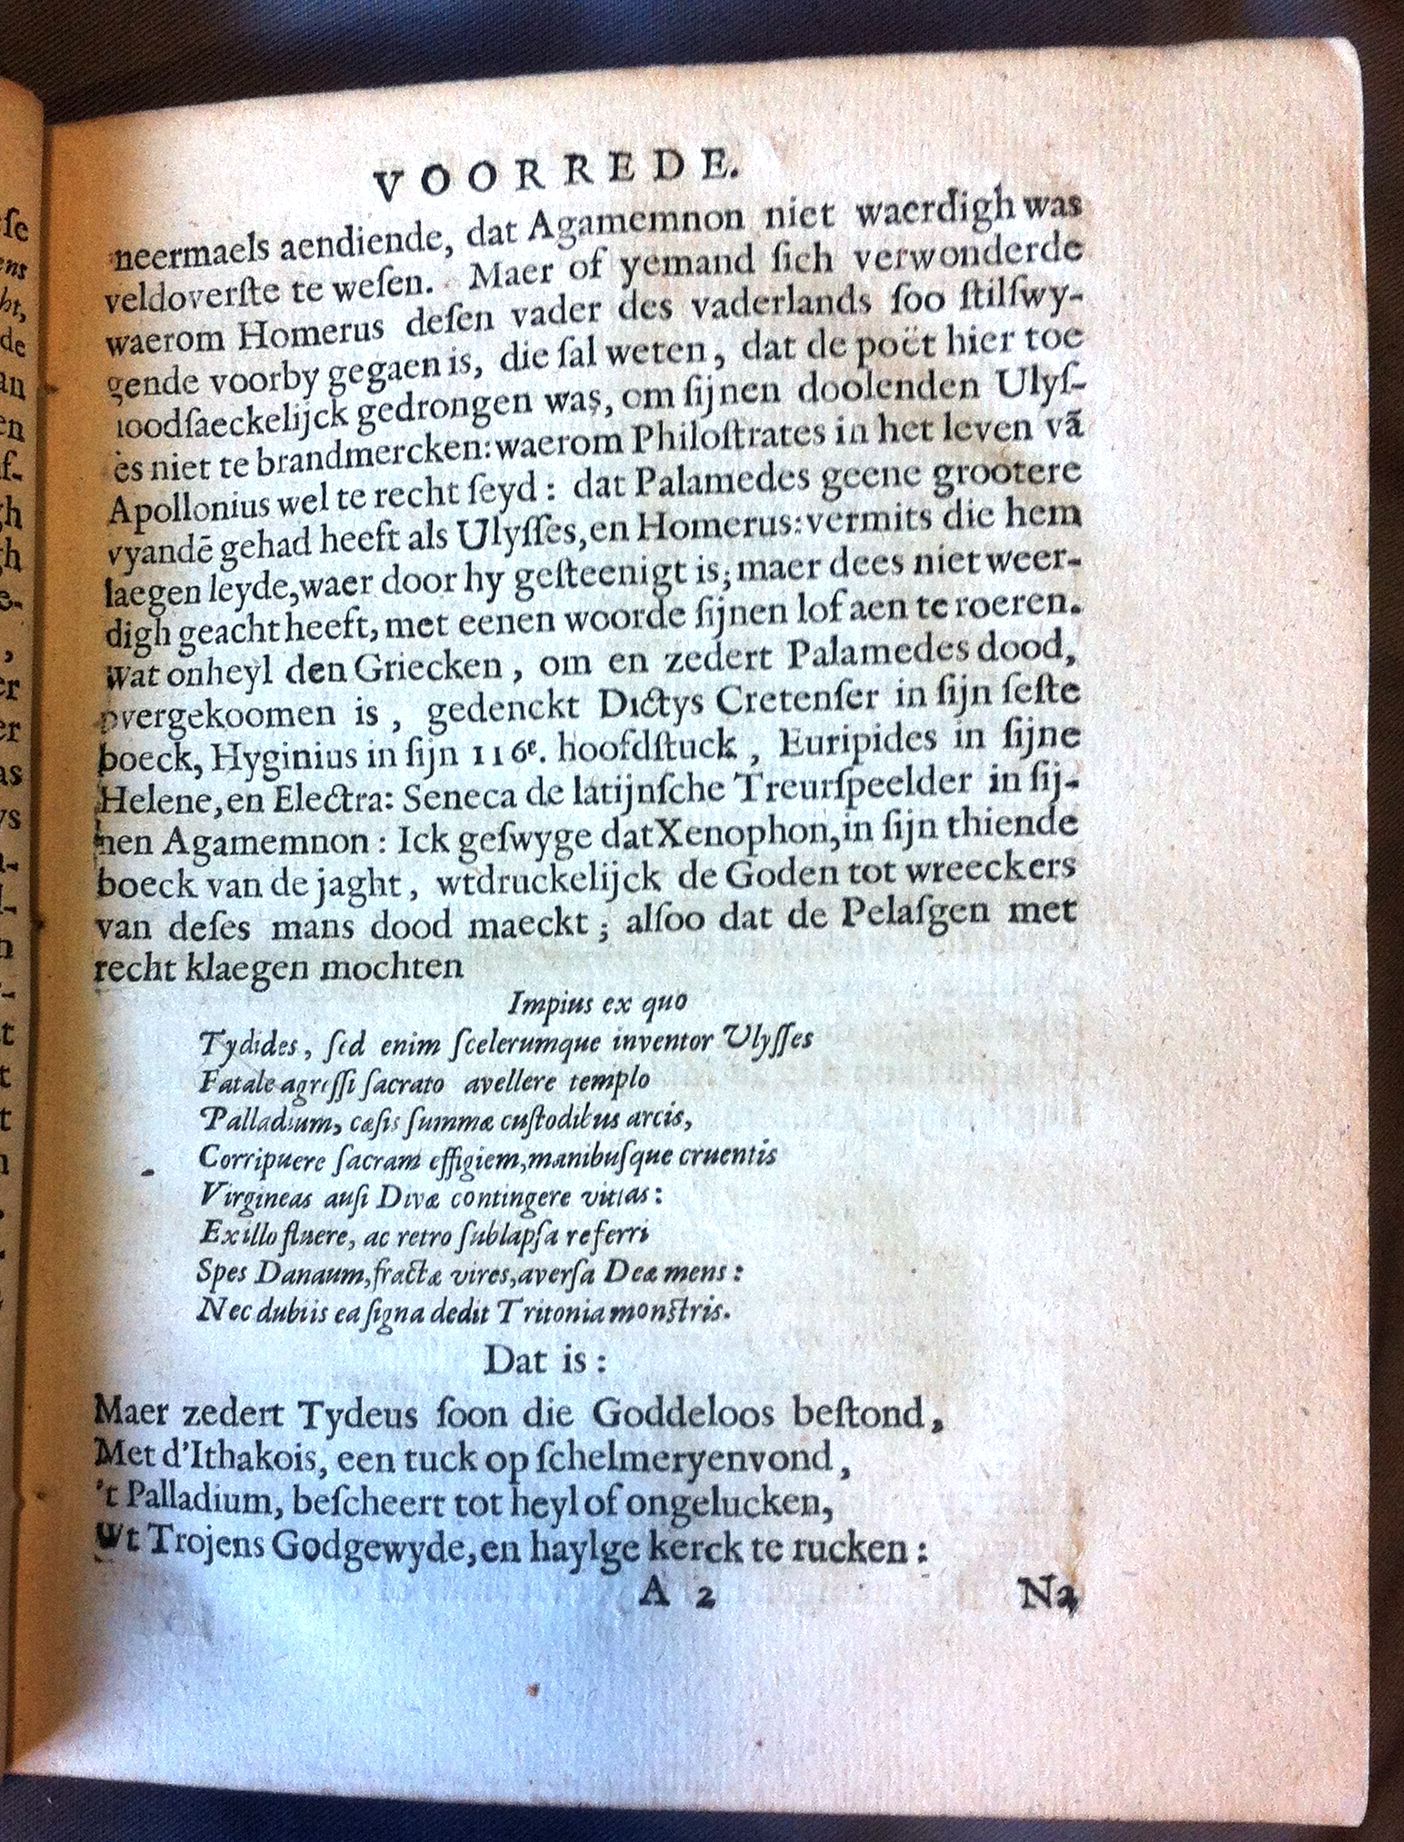 VOORREDE.
neermaels aendiende, dat Agamemnon niet waerdigh was
veldoverſte te weſen. Maer of yemand ſich verwonderde
waerom Homerus deſen vader des vaderlands ſoo ſtilſwy-
gende voorby gegaen is, die ſal weten, dat de poët hier toe
noodſaeckelijck gedrongen was, om ſijnen doolenden Ulyſ-
ses niet te brandmercken: waerom Philoſtrates in het leven vã
Apollonius wel te recht ſeyd: dat Palamedes geene grootere
vyandē gehad heeft als Ulyſſes, en Homerus: vermits die hem
laegen leyde, waer door hy geſteenigt is; maer dees niet weer-
digh geacht heeft, met eenen woorde ſijnen lof aen te roeren.
Wat onheyl den Griecken, om en zedert Palamedes dood,
overgekoomen is, gedenckt Dictys Cretenſer in ſijn ſeſte
boeck, Hyginius in ſijn 116e. hoofdſtuck, Euripides in ſijne
Helene, en Electra: Seneca de latijnſche Treurſpeelder in ſij-
nen Agamemnon: Ick geſwyge dat Xenophon, in ſijn thiende
boeck van de jaght, wtdruckelijck de Goden tot wreeckers
van deſes mans dood maeckt; alſoo dat de Pelaſgen met
recht klaegen mochten
Impius ex quo
Tydides, ſed enim ſcelerumque inventor Ulyſſes
Fatale agreſſi ſacrato avellere templo
Palladium, cæſis ſummæ cuſtodibus arcis,
Corripuere ſacram effigiem, manibuſque cruentis
Virgineas auſi Divæ contingere vittas:
Ex illo fluere, ac retro ſublapſa referri
Spes Danaum, fractæ vires, averſa Deæ mens:
Nec dubiis ea ſigna dedit Tritonia monſtris.
Dat is:
Maer zedert Tydeus ſoon die Goddeloos beſtond,
Met d'Ithakois, een tuck op ſchelmeryenvond,
't Palladium, beſcheert tot heyl of ongelucken,
Wt Trojens Godgewyde, en haylge kerck te rucken:
A 2 Na